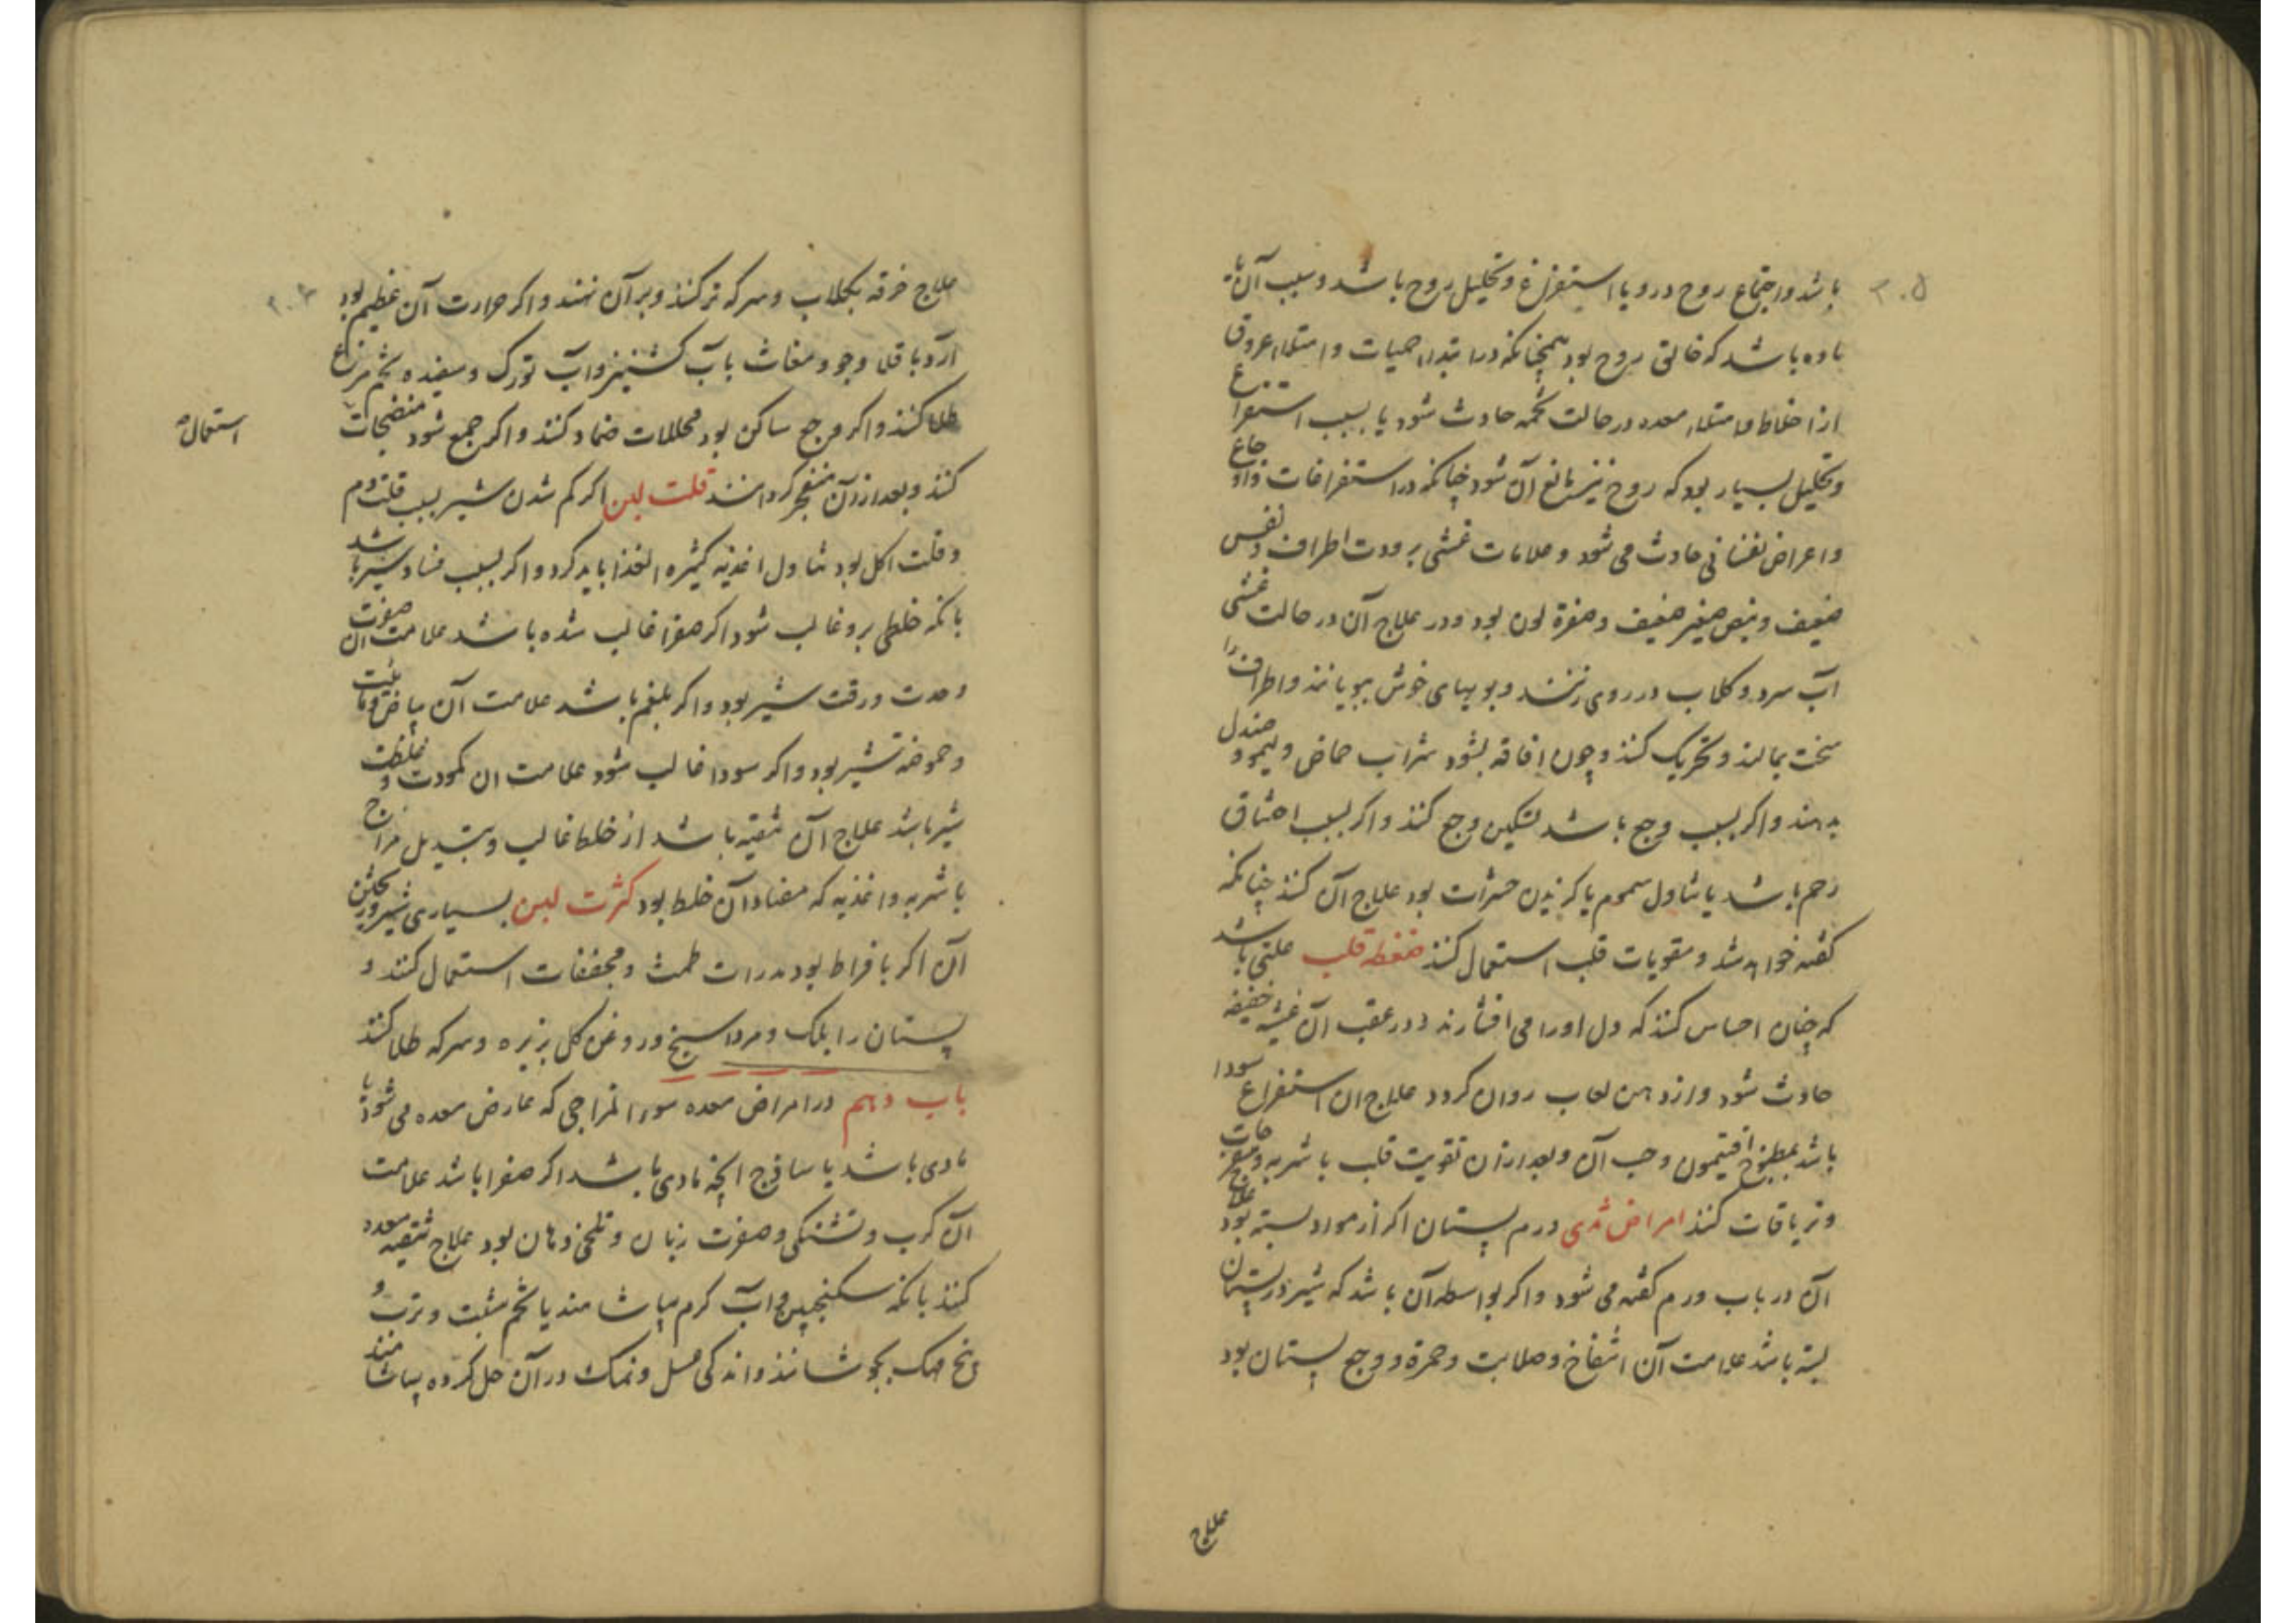 ۳۰۵
باشد و اجتماع روح درو یا استفراغ و تحلیل روح باشد و سبب آن یا
ماده باشد که خالق روح بود همچنانکه در ابتداء حمیات و امتلاء عروق
از اخلاط و امتلاء معده در حالت تخمه حادث شود یا بسبب استفراغ
و تحلیل بسیار بود که روح نیز مانع آن شود چنانکه در استفراغات و اوجاع
و اعراض نفسانی حادث می شود و علامات غشی برودت اطراف و نفس
ضعیف و نبض صغیر ضعیف و صفرة لون بود و در علاج آن در حالت غشی
آب سرد و کلاب در روی زنند و بویهای خوش ببویانند و اطراف را
سخت بمالند و تحریک کنند و چون افاقه بشود شراب حماض و لیمو و صندل
بدهند و اکر بسبب وجع باشد تسکین وجع کنند و اکر بسبب اختناق
رحم باشد یا تناول سموم یا کزیدن حشرات بود علاج آن کنند چنانکه
کفته خواهد شد و مقویات قلب استعمال کنند ضغطه قلب علتی باشد
که چنان احساس کنند که دل او را می افشارند و در عقب آن غشیه خفیفه
حادث شود و از دهن لعاب روان کردد علاج ان استفراغ سودا
باشد بمطبوخ افتیمون و حب آن و بعد از ان تقویت قلب باشربه و مفرحات
و تریاقات کنند امراض ثدی ورم پستان اکر از مواد بسته بود علاج
آن در باب ورم کفته می شود و اکر بواسطه آن باشد که شیر در پستان
بسته باشد علامت آن انتفاخ و صلابت و حمرة و وجع پستان بود
علاج
علاج خرقه بکلاب و سرکه تر کنند و بر آن نهند و اکر حرارت آن عظیم بود
آرد باقلا و جو و مغاث بآب کشنیز و آب تورک و سفیده تخم مرغ
طلا کنند و اکر وجع ساکن بود محللات ضماد کنند و اکر جمع شود منضجات
استعمال
کنند و بعد از آن منفجر کردانند قلت لبن اکر کم شدن شیر بسبب قلت دم
و قلت اکل بود تناول اغذیه کثیره الغذا باید کرد و اکر بسبب فساد شیر باشد
بانکه خلطی برو غالب شود اکر صفرا غالب شده باشد علامت ان صفرت
و حدت و رقت شیر بود و اکر بلغم باشد علامت آن بیاض و مائیت
و حموضة شیر بود و اکر سودا غالب شود علامت ان کمودت و غلظت
شیر باشد علاج آن تنقیه باشد از خلط غالب و تبدیل مزاج
باشربه و اغذیه که مضاد آن خلط بود کثرت لبن بسیاری شیر و ریختن
آن اکر بافراط بود مدرات طمث و مجففات استعمال کنند و
پستان را بلک و مرداسنج و روغن کل بزیره و سرکه طلا کنند
باب دهم در امراض معده سوء المزاجی که عارض معده می شود یا
مادی باشد یا ساذج انچه مادی باشد اکر صفرا باشد علامت
آن کرب و تشنکی و صفرت زبان و تلخی دهان بود علاج تنقیه معده
کنند بانکه سکنجبین و آب کرم بیاشامند یا تخم شبت و ترب و
بیخ مهک بجوشانند و اندکی عسل و نمک در آن حل کرده بیاشامند